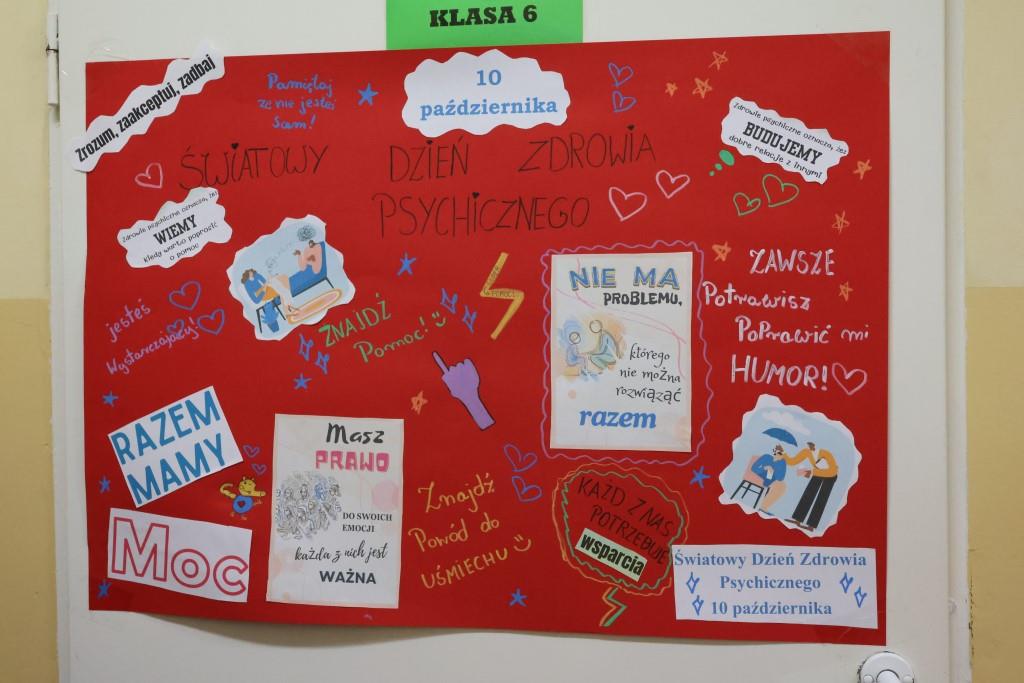 KLASA 6
Zrozum, zaakceptuj, zadbaj
Pamiętaj
że nie jesteś
sam!
10
października
ŚWIATOWY DZIEŃ ZDROWIA
PSYCHICZNEGO
Zdrowie psychiczne oznacza, że
BUDUJEMY
dobre relacje z innymi
Zdrowie psychiczne oznacza, że
WIEMY
kiedy warto poprosić
o pomoc
jesteś
Wystarczający!
ZNAJDŹ
Pomoc!
NIE MA
PROBLEMU,
którego
nie można
rozwiązać
razem
ZAWSZE
Potrawisz
PoPrawić mi
HUMOR!
RAZEM
MAMY
Moc
Masz
PRAWO
DO SWOICH
EMOCJI
każda z nich jest
WAŻNA
Znajdź
Powód do
UŚMIECHU
KAŻD Z NAS
POTRZEBUJE
wsparcia
Światowy Dzień Zdrowia
Psychicznego
10 października